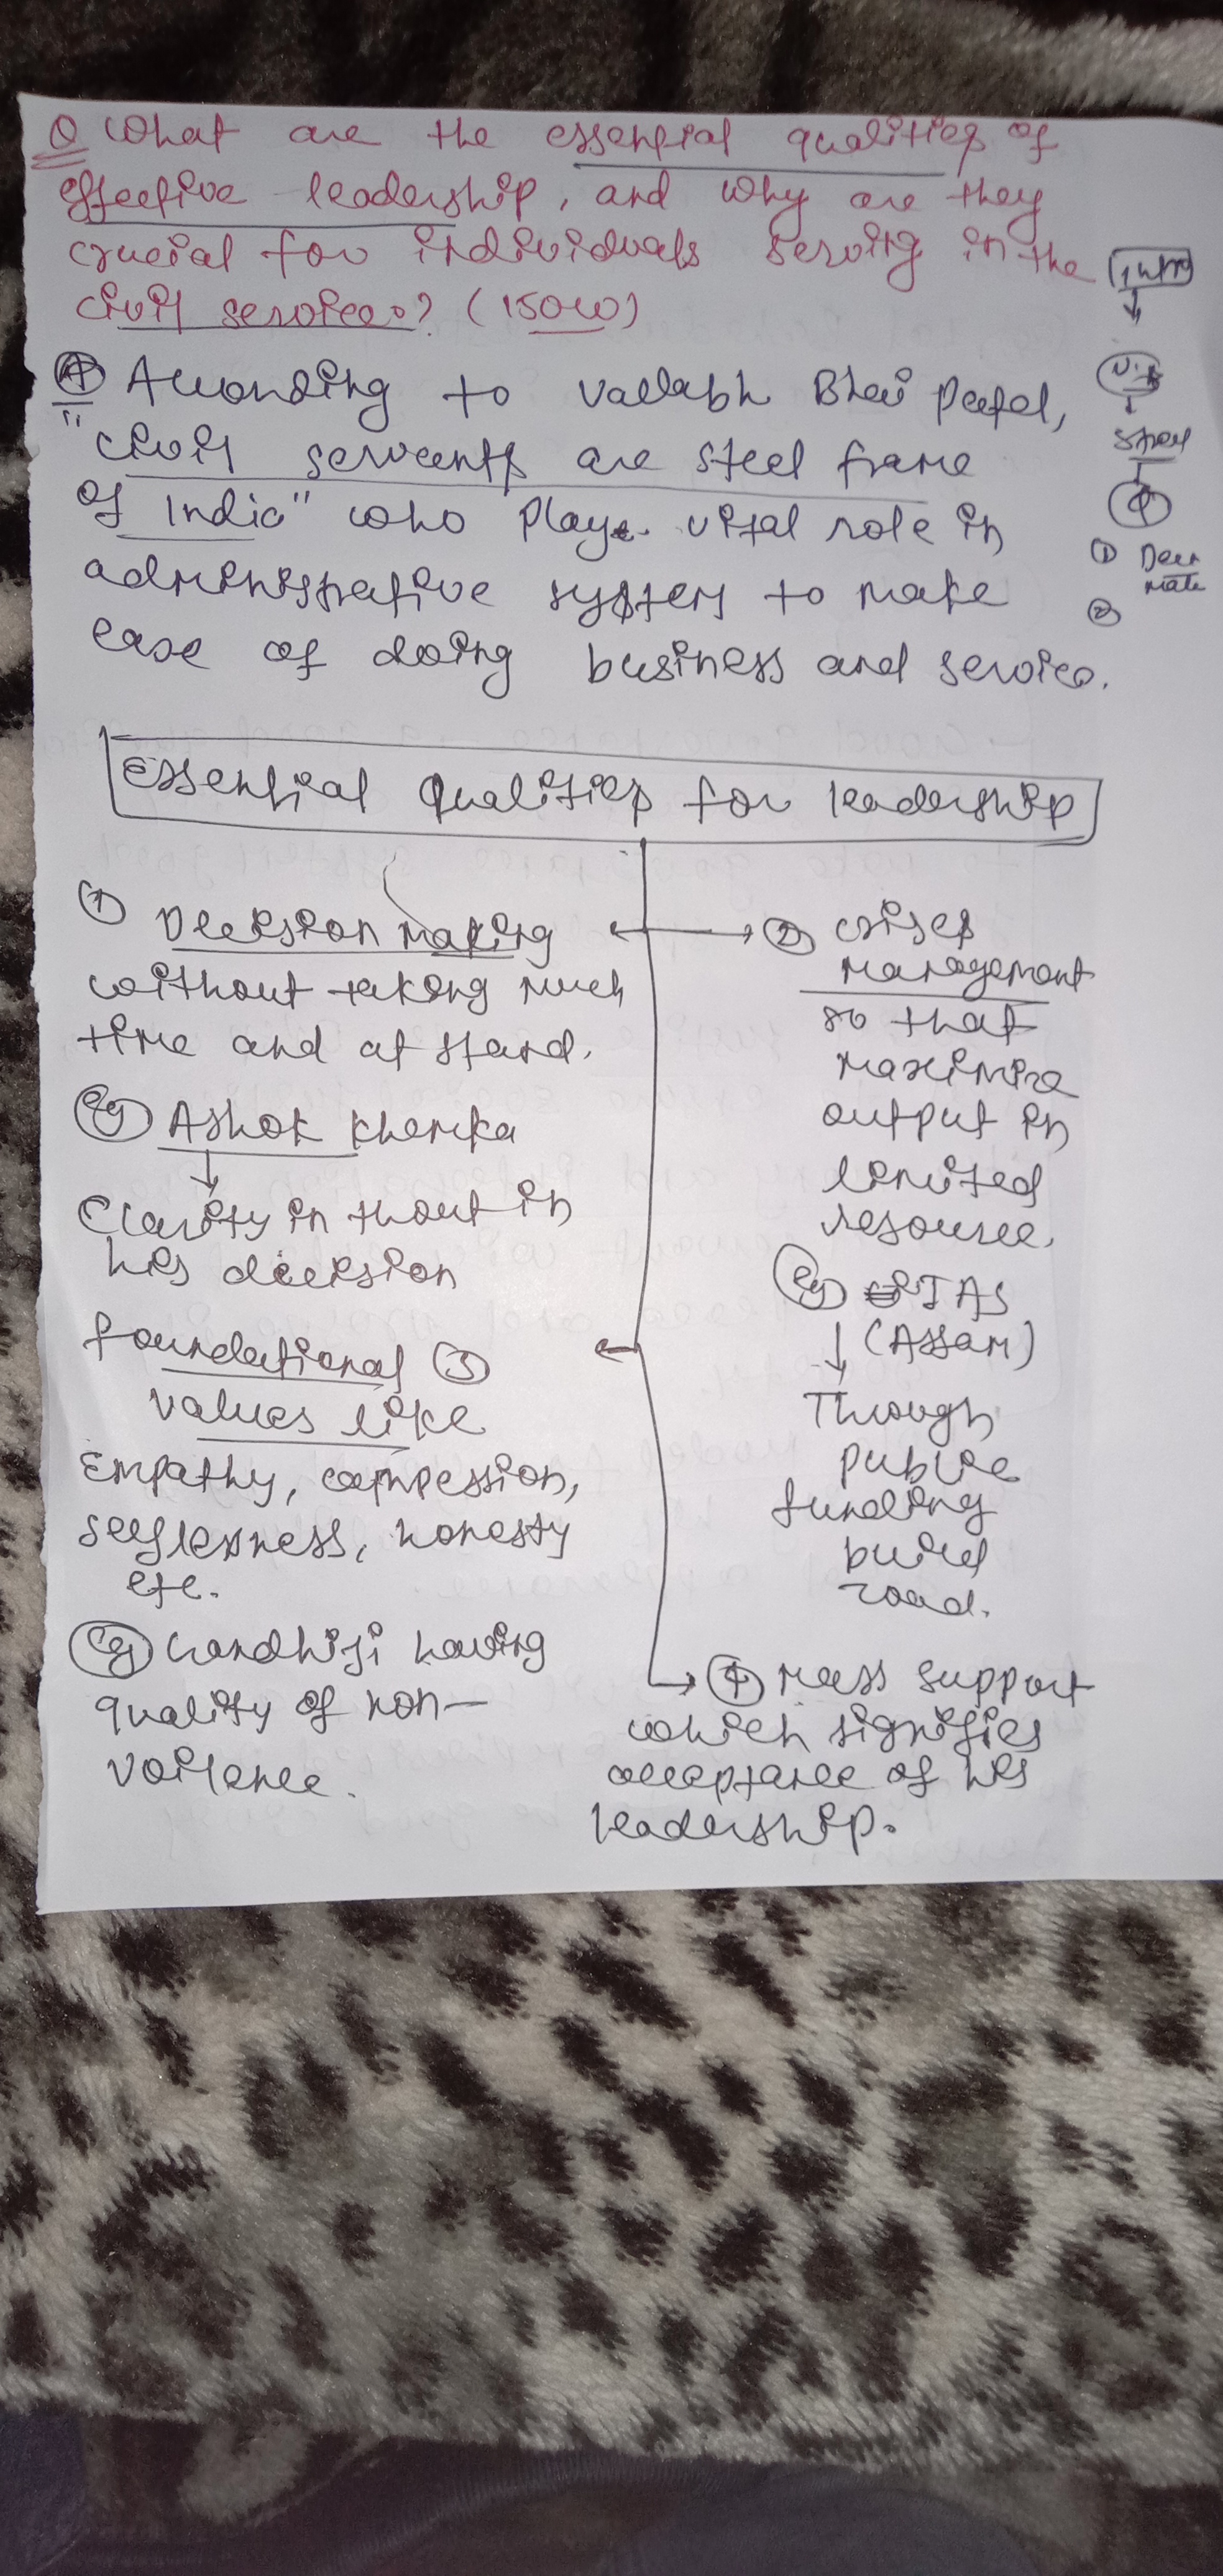 Q What are the essential qualities of
effective leadership, and why are they
crucial for individuals serving in the
civil services? (150W)
Intro
Steel
① Decn
Mate
②
A According to Vallabh Bhai Patel,
"civil servants are steel frame
of India" who play vital role in
administrative system to make
ease of doing business and service.
Essential Qualities for leadership
① Decision Making
without taking much
time and at stand.
eg Ashok Khemka
↓
Clarity in thout in
his decision
② crises
Management
so that
maximize
output in
limited
resource.
eg IAS
↓ (Assam)
Through
public
funding
build
road.
foundational ③
values like
Empathy, compession,
selflessness, honesty
etc.
eg Gandhiji having
quality of non-
voilence.
④ Mass support
which signifies
acceptance of his
leadership.